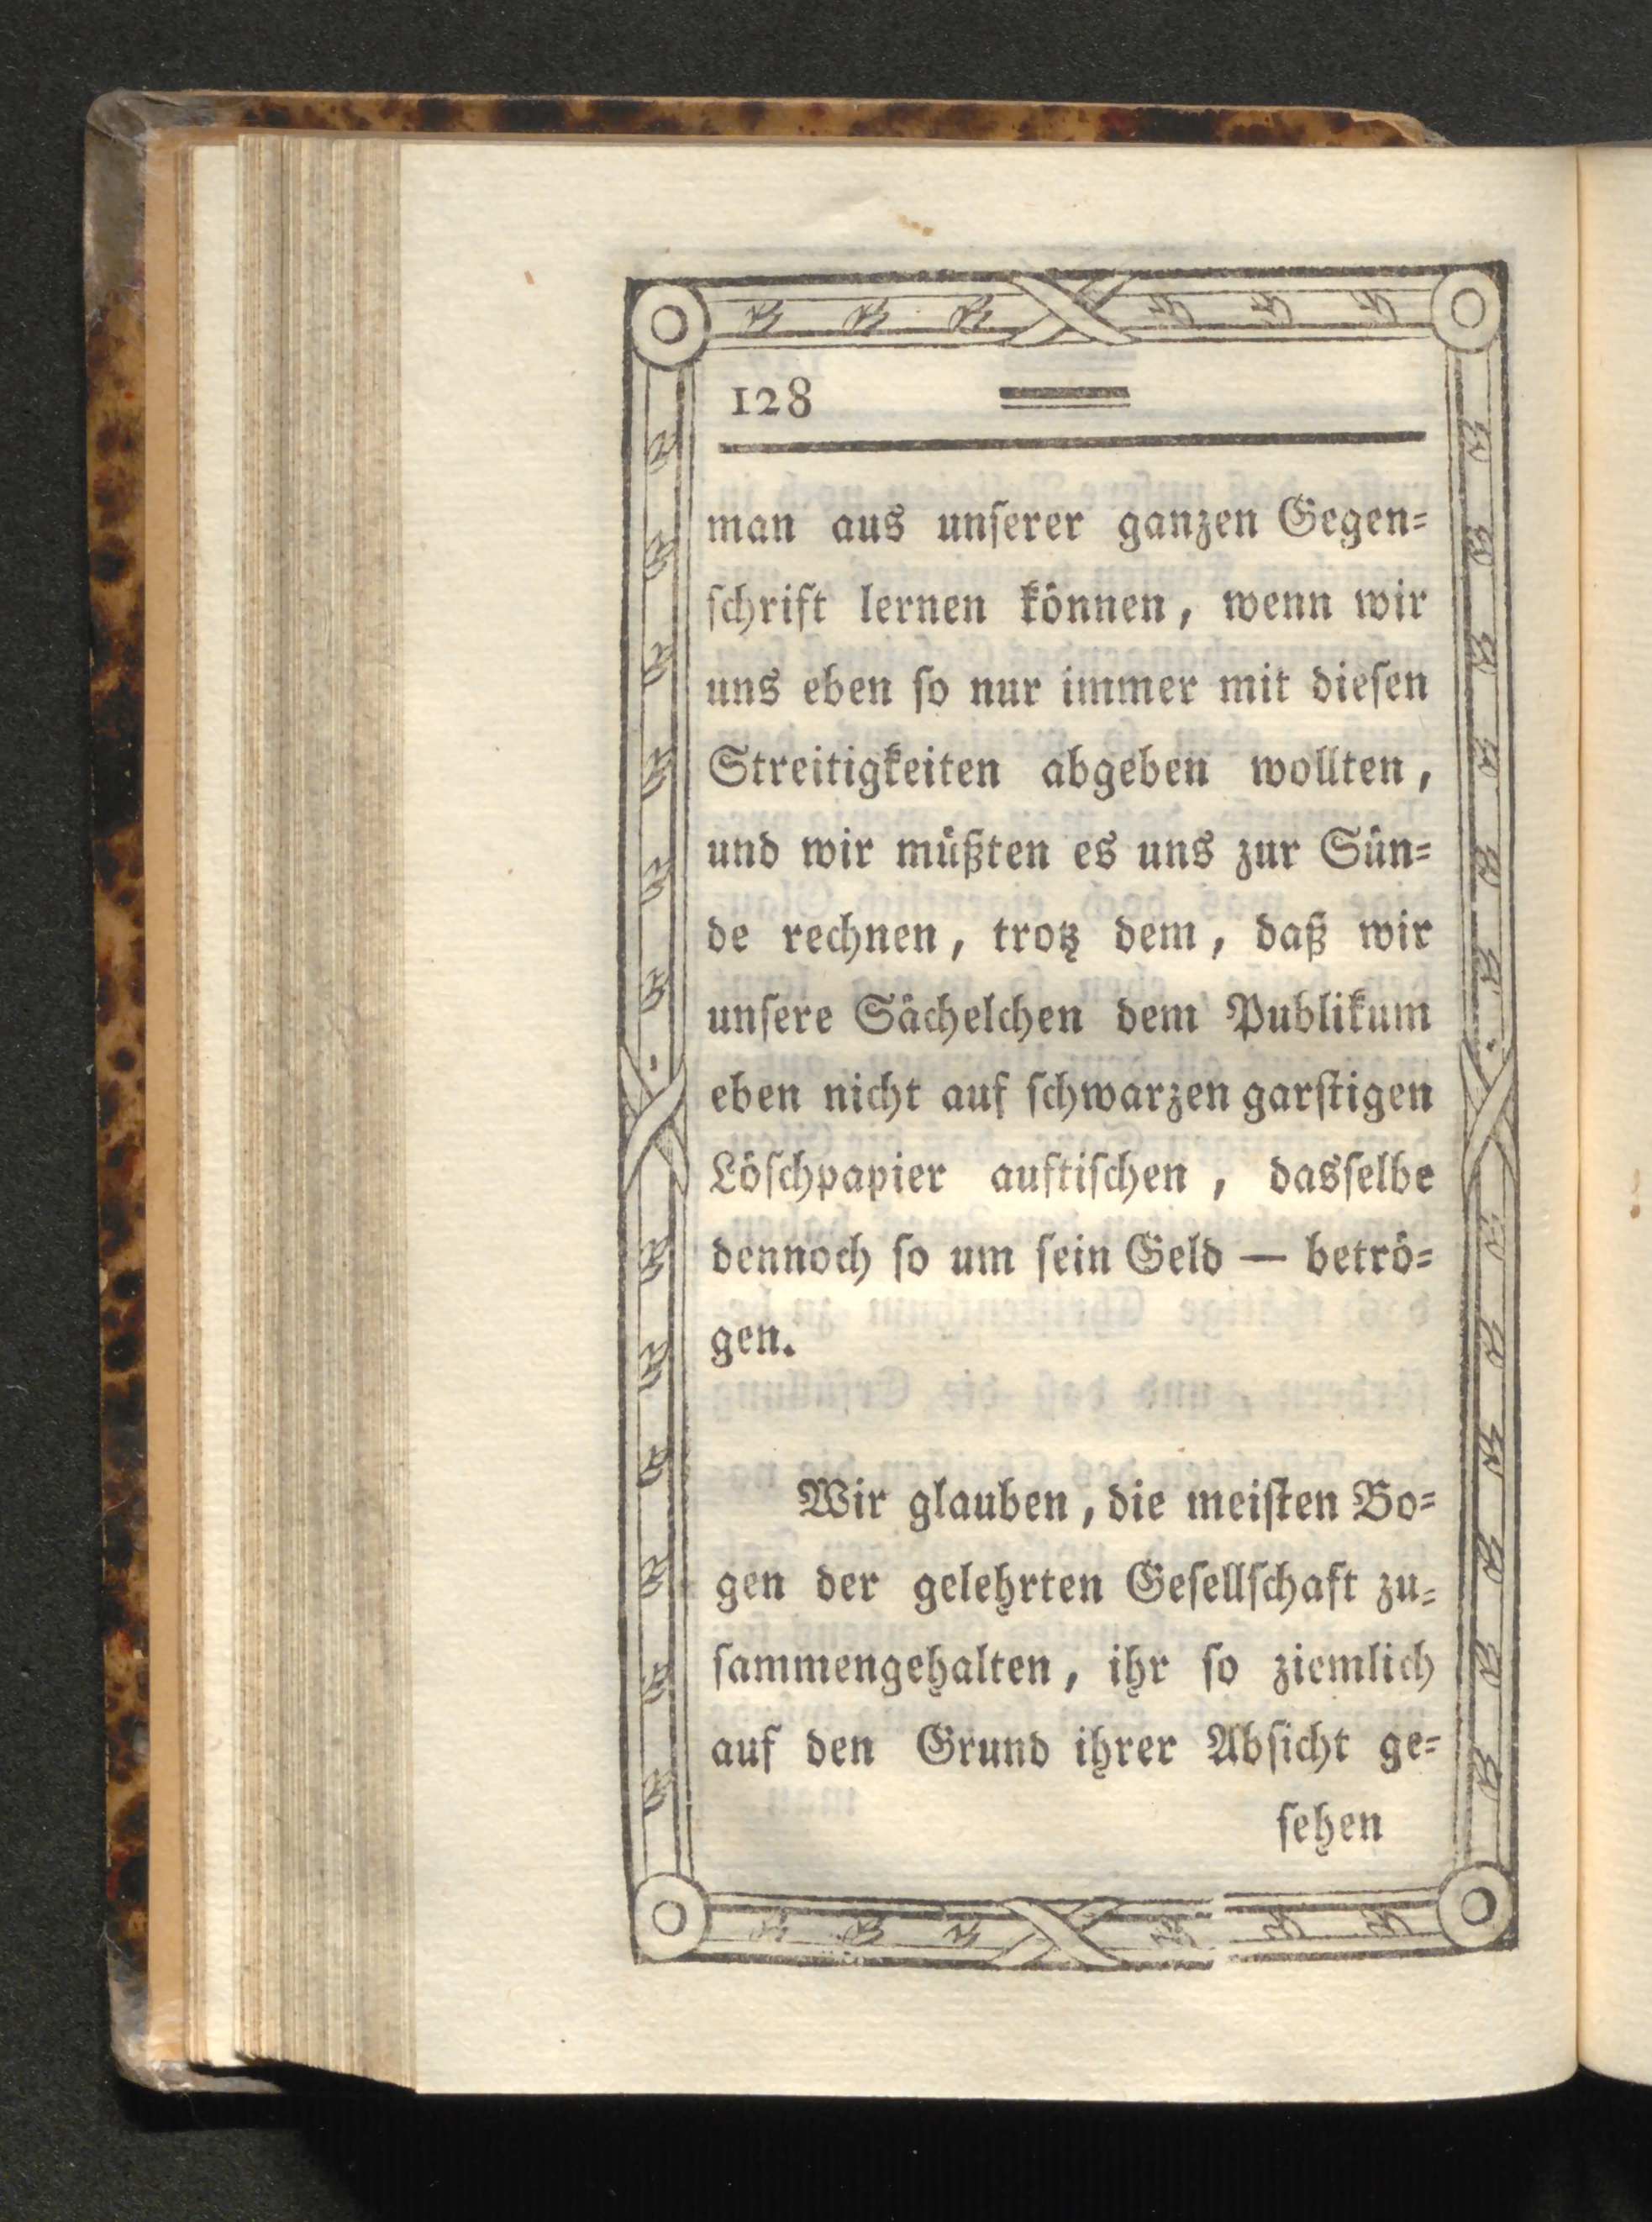 128
man aus unſerer ganzen Gegen⸗
ſchrift lernen können, wenn wir
uns eben ſo nur immer mit dieſen
Streitigkeiten abgeben wollten,
und wir müßten es uns zur Sün⸗
de rechnen, trotz dem, daß wir
unſere Sächelchen dem Publikum
eben nicht auf ſchwarzen garſtigen
Löſchpapier auftiſchen, dasſelbe
dennoch ſo um ſein Geld — betrö⸗
gen.
Wir glauben, die meiſten Bo⸗
gen der gelehrten Geſellſchaft zu⸗
ſammengehalten, ihr ſo ziemlich
auf den Grund ihrer Abſicht ge⸗
ſehen